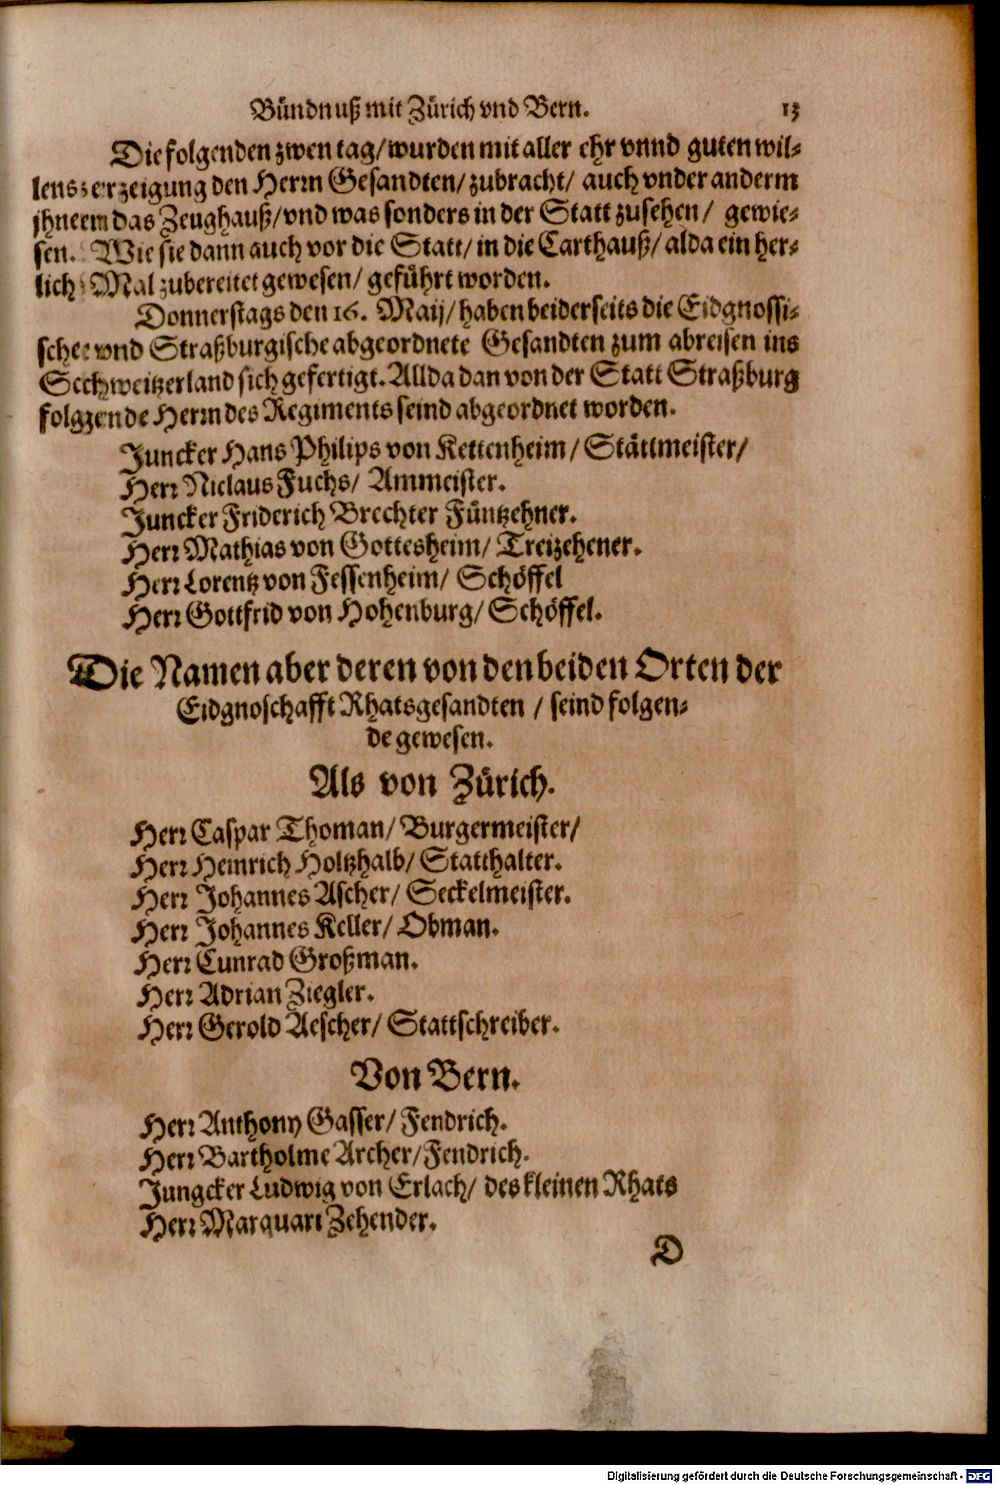 Bündnuß mit Zürich vnd Bern. 13
Die folgenden zwen tag/ wurden mit aller ehr vnnd guten wil-
lens erzeigung den Herrn Gesandten/ zubracht/ auch vnder anderm
jhnen das Zeughauß/ vnd was sonders in der Statt zusehen/ gewie-
sen. Wie sie dann auch vor die Statt/ in die Carthauß/ alda ein her-
lich Mal zubereitet gewesen/ geführt worden.
Donnerstags den 16. Maij/ haben beiderseits die Eidgnossi-
sche vnd Straßburgische abgeordnete Gesandten zum abreisen ins
Schweitzerland sich gefertigt. Allda dan von der Statt Straßburg
folgende Herrn des Regiments seind abgeordnet worden.
Juncker Hans Philips von Kettenheim/ Stättmeister/
Herr Niclaus Fuchs/ Ammeister.
Juncker Friderich Brechter Füntzehner.
Herr Mathias von Gottesheim/ Treizehener.
Herr Lorentz von Fessenheim/ Schöffel
Herr Gottfrid von Hohenburg/ Schöffel.
Die Namen aber deren von den beiden Orten der
Eidgnoschafft Rhatsgesandten / seind folgen-
de gewesen.
Als von Zürich.
Herr Caspar Thoman/ Burgermeister/
Herr Heinrich Holtzhalb/ Statthalter.
Herr Johannes Ascher/ Seckelmeister.
Herr Johannes Keller/ Obman.
Herr Cunrad Großman.
Herr Adrian Ziegler.
Herr Gerold Aescher/ Stattschreiber.
Von Bern.
Herr Anthony Gasser/ Fendrich.
Herr Bartholme Archer/ Fendrich.
Jungcker Ludwig von Erlach/ des kleinen Rhats
Herr Marquart Zehender.
D
Digitalisierung gefördert durch die Deutsche Forschungsgemeinschaft - DFG